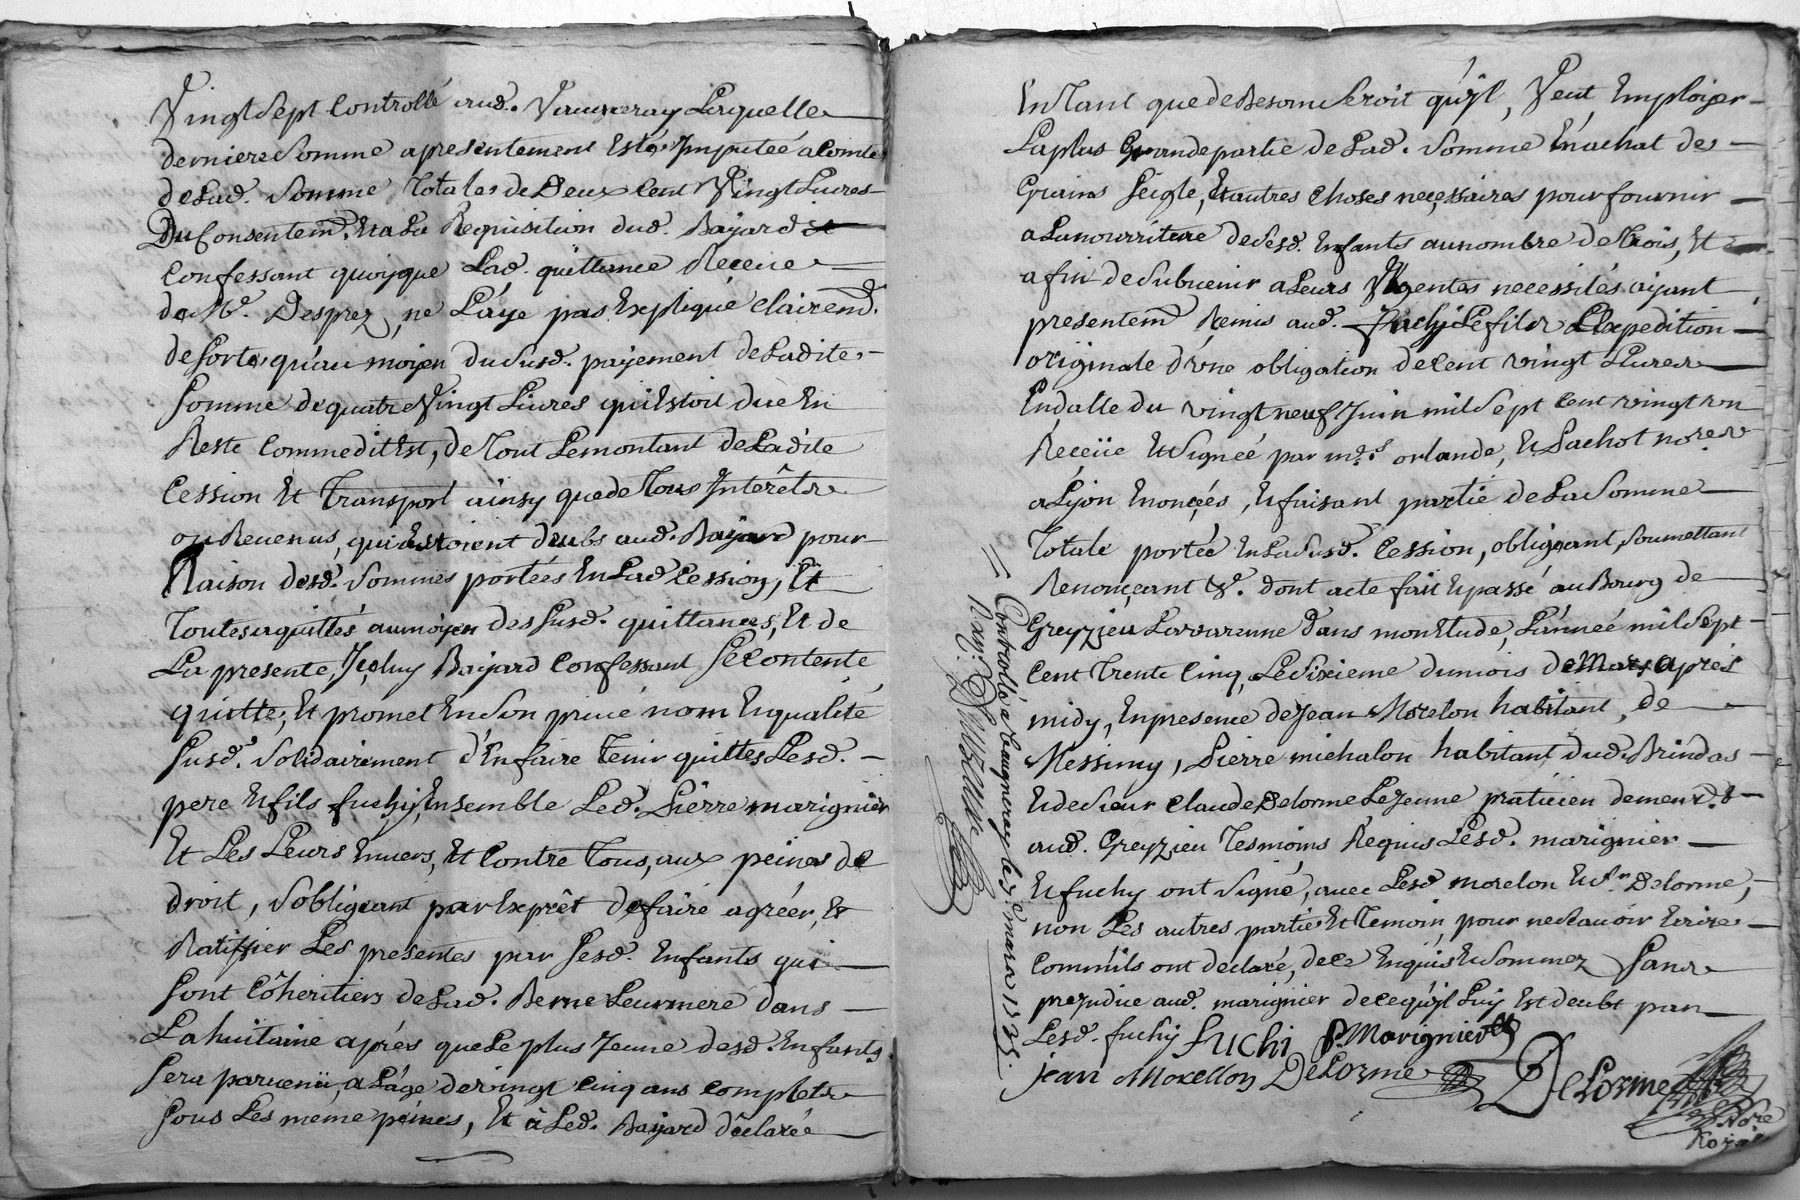 Vingt Sept Controllé aud. Vaugneray Laquelle
derniere Somme a presentement Esté Imputée a Comte
de Lad. Somme Totale de Deux Cent Vingt Livres
Du Consentem. Et a La Requisition dud. Bayard
Confessant quoyque Lad. quittance Receüe
de Me. Desprez, ne L'aye pas Expliqué Clairem.
de Sorte qu'au moyen du Susd. payement de Ladite
Somme de quatre Vingt Livres qui Estoit düe En
Reste Comme dit Est, de Tout Le montant de Ladite
Cession Et Transport ainsy que de Tous Interêts
ou Revenus, qui Estoient deubs aud. Bayard pour
Raison desd. Sommes portées En Lad Cession, Et
Toutes aquittés au moyen des Susd. quittances, Et de
La presente, Iceluy Bayard Confessant Se Contente
quitte, Et promet En Son privé nom Et qualité
Susd. Solidairement d'En faire Tenir quittes Lesd.
pere Et fils fuchy, Ensemble Led. Pierre marignier
Et Les Leurs Envers, Et Contre Tous, aux peines de
droit, S'obligeant par Exprêt de faire agréer, Et
Ratiffier Les presentes par Sesd. Enfants qui
Sont Côheritiers de Lad. Berne Leur mere dans
La huitaine aprés que Le plus Jeune desd. Enfants
Sera parvenü, a L'âge de vingt Cinq ans Complets
Sous Les meme peines, Et à Led. Bayard déclaré
En Tant que de Besoin Seroit qu'yl, Veut Employer
La plus Grande partie de Lad. Somme En achat de
Grains Seigle, Et autres Choses neçessaires pour fournir
a La nourriture de Sesd. Enfants au nombre de Trois, Et
afin de Subvenir a Leurs Urgentes necessités ayant
presentem Remis aud. fuchy Le fils L'Expedition
originale d'une obligation de Cent vingt Livres
En datte du vingt neuf Juin mil Sept Cent vingt un
Reçeüe Et Signée par mrs. orlande, Et Sachot no.res
a Lyon Enonçées, Et faisant partie de La Somme
Totale portée En La Susd. Cession, obligeant, Soumettant
Renonçeant &. dont acte fait Et passé au Bourg de
Greyzieu Lavarenne dans mon Etude, L'année mil Sept
Cent Trente Cinq, Le Sixieme du mois de Mars aprés
midy, En presence de Jean Morelon habitant, de
Messimy, Pierre michalon habitant dud. Brindas
Et de Sieur Claude Delorme Le Jeune praticien demeur.t
aud. Greyzieu Tesmoins Requis Lesd. marignier
Et fuchy ont Signé, avec Lesd morelon Et Sr. Delorme,
non Les autres partie Et Temoin, pour ne Sçavoir Ecrire
Comm'ils ont declaré, de Ce Enquis Et Sommez Sans
prejudice aud. marignier de Ce qu'yl Luy Est deubt par
Lesd. fuchy fuchi P. Marignier
jean Morellon DeLorme DeLorme
No.re
Royal
Controllé a Vaugneray le 7e. mars 1735.